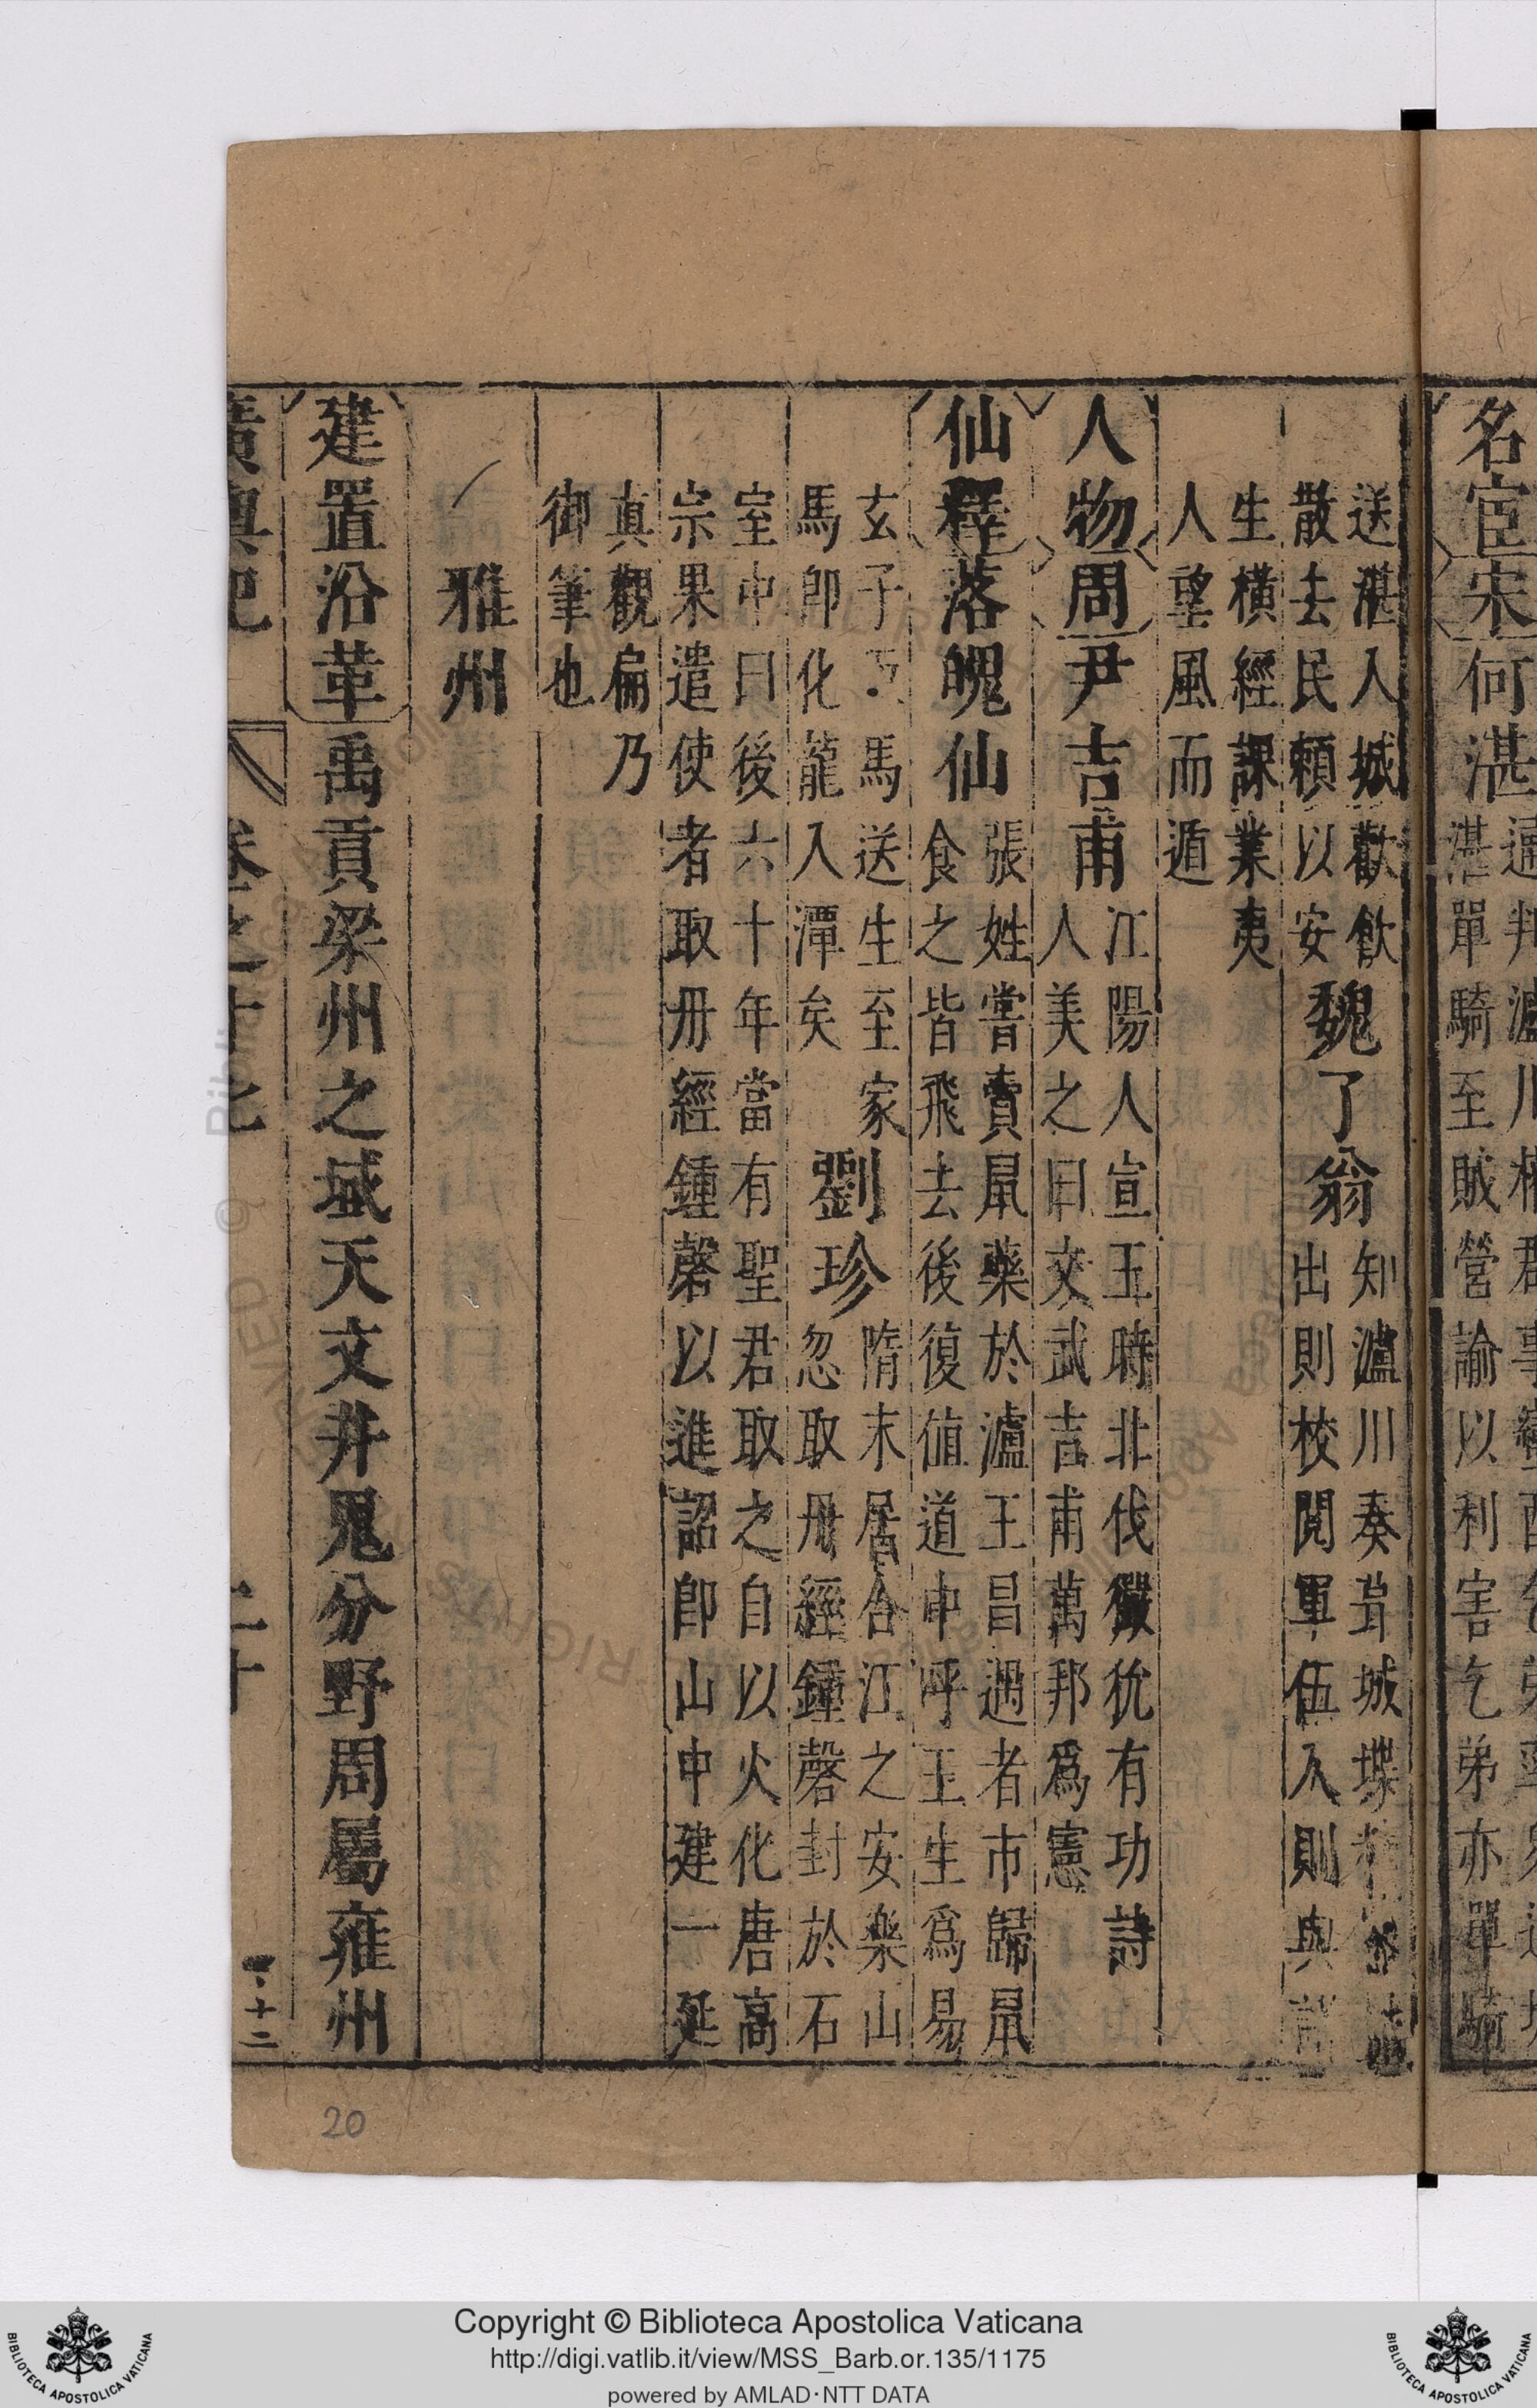 名宦宋何湛
湛單騎至賊營諭以利害乞弟亦單騎
送湛入城歡飲
散去民賴以安
魏了翁
知瀘川奏葺城堞
出則校閱軍伍入則與諸
生橫經課業夷
人望風而遁
人物周尹吉甫
江陽人宣王時北伐玁狁有功詩
人美之曰文武吉甫萬邦爲憲
仙釋落魄仙
張姓嘗賣鼠藥於瀘王昌遇者市歸鼠
食之皆飛去後復值道中呼王生爲易
玄子馬送生至家
馬卽化龍入潭矣
劉珍
隋末居合江之安樂山
忽取丹經鍾磬封於石
室中曰後六十年當有聖君取之自以火化唐高
宗果遣使者取丹經鍾磬以進詔卽山中建一延
真觀扁乃
御筆也
雅州
建置沿革禹貢梁州之域天文井鬼分野周屬雍州
廣輿記
卷之十七
二十
20
Copyright © Biblioteca Apostolica Vaticana
http://digi.vatlib.it/view/MSS_Barb.or.135/1175
powered by AMLAD·NTT DATA
BIBLIOTECA APOSTOLICA VATICANA
BIBLIOTECA APOSTOLICA VATICANA